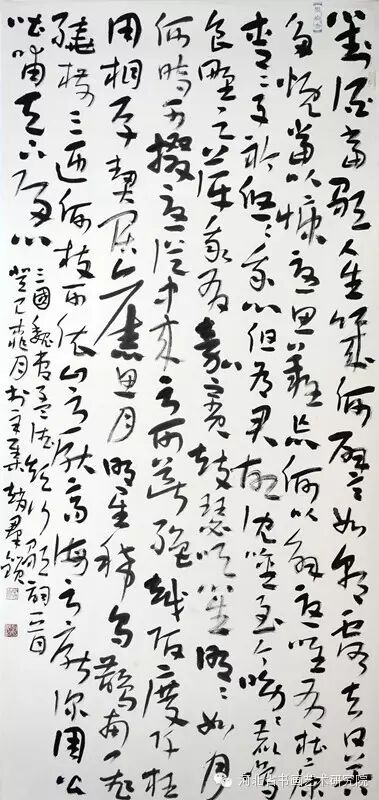 對酒當歌人生幾何譬如朝露去日苦
多慨當以慷憂思難忘何以解憂唯有杜康
青々子衿悠々我心但為君故沈吟至今呦々鹿鳴
食野之苹我有嘉賓鼓瑟吹笙明々如月
何時可掇憂從中來不可斷絕越陌度阡枉
用相存契闊月明星稀烏鵲南飛
繞樹三匝何枝可依山不厭高海不厭深周公
吐哺天下歸心
三國魏曹孟德短歌詞一首
癸巳月
河北省书画艺术研究院